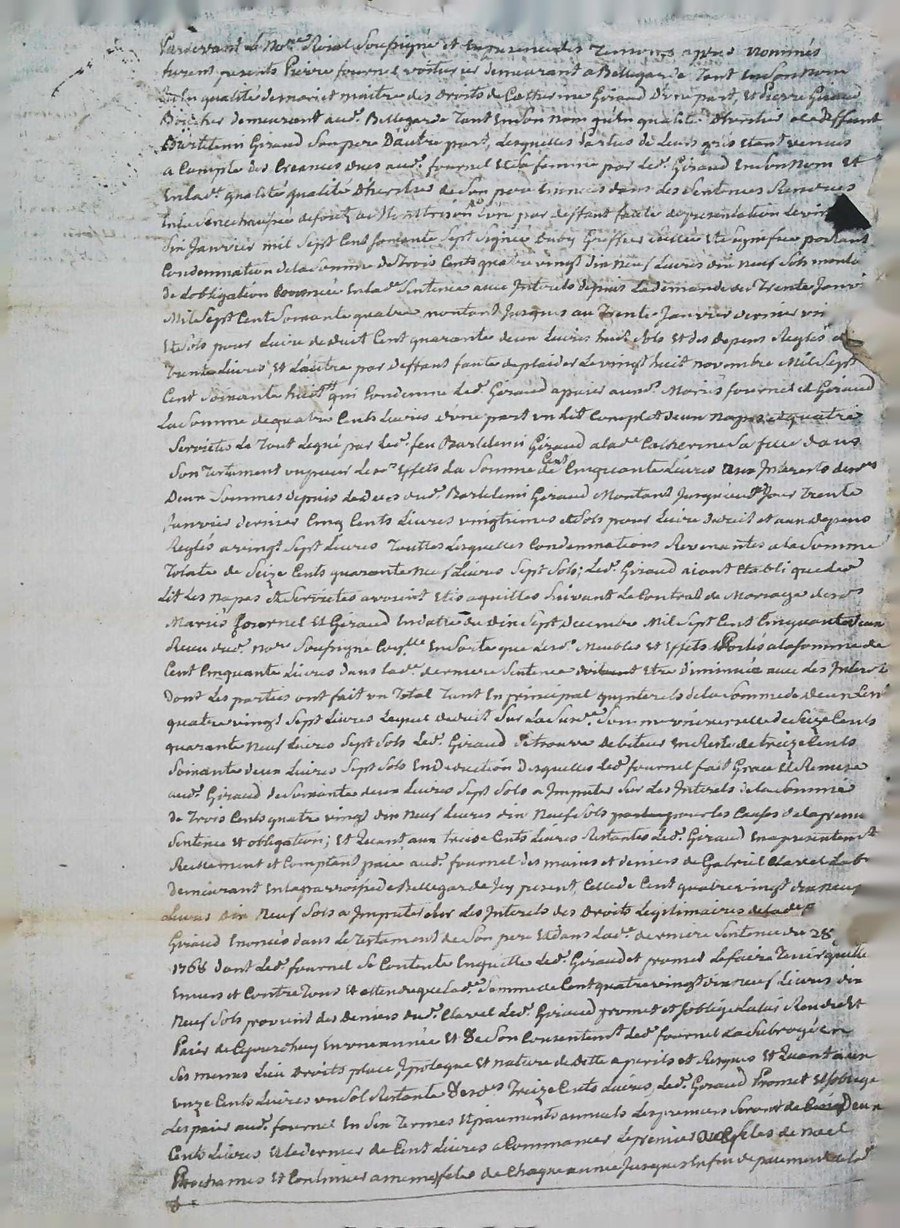 Pardevant le No.re Roial Soussigné et en presence des Temoins apres nommés
furent presents Pierre fournel voiturier demeurant a Bellegarde Tant en son nom
qu'en qualité de mari et maitre des Droits de Catherine Giraud D'une part, et Pierre Giraud
Boucher demeurant aud. Bellegarde Tant en son nom qu'en qualité D'heritier de deffunt
Bartelemi Giraud son pere D'autre part, Lesquelles Parties de Leurs gris etant venues
a Compte des Creances dues aud. fournel et sa femme par led. Giraud en son nom et
en lad. qualité qualité D'heritier de son pere enoncés dans des Sentences Rendues
en la senechaussée de forez a Montbrison L'une par deffaut faute de presentation le vingt
six Janvier mil Sept Cent soixante Sept Signée Duby Greffier scellée et signifiée portant
Condemnation de la somme de Trois Cents quatre vingt dix Neuf Livres dix neuf Sols montant
de L'obligation enoncée en lad. Sentence avec Interets depuis la demande du Trente Janvier
Mil Sept Cent Soixante quatre montant Jusques au Trente Janvier dernier un
et Sols pour Livre deduit Cent quarante deux Livres huit Sols et des depens Reglés a
Trente Livres et L'autre par deffaut faute de plaider Le vingt huit novembre Mil Sept
Cent Soixante huit qui Condemne led. Giraud a paier auxd. Mariés fournel et Giraud
La Somme de quatre Cents Livres d'une part un Lit Complet deux Napes et quatre
Serviettes Le Tout Legué par led. feu Bartelemi Giraud a lad. Catherine Sa fille dans
Son Testament ou pour led. Effets la Somme de Cent Cinquante Livres aux Interets desd.
Deux Sommes depuis le deces dud. Bartelemi Giraud Montant Jusqu'aud. Jour Trente
Janvier dernier Cinq Cents Livres vingtiemes et Sols pour Livre deduit et aux depens
Reglés a vingt Sept Livres Touttes Lesquelles Condemnations Revenantes a la Somme
Totale de Seize Cents quarante Neuf Livres Sept Sols; Led. Giraud aiant Etabli que led.
Lit Les Napes et Serviettes avoient Etés aquittes Suivant le Contrat de Mariage desd.
Mariés fournel et Giraud En datte du dix Sept decembre Mil Sept Cent Cinquante deux
Recu dud. No.re Soussigné En sorte que lesd. Meubles et Effets Portés a la somme de
Cent Cinquante Livres dans lad. derniere Sentence doivent Etre diminués avec les Interets
Dont Les parties ont fait un Total Tant En principal qu'interets de la Somme de deux Cent
quatre vingt Sept Livres Laquelle deduit Sur La Susd. Somme universelle de Seize Cents
quarante Neuf Livres Sept Sols Led. Giraud Se trouve debiteur En Reste de treize Cents
Soixante deux Livres Sept Sols En Deduction Desquelles Led. fournel fait Grace et Remise
aud. Giraud de Soixante deux Livres Sept Sols a Imputer Sur les Interets de la Somme
de Trois Cents quatre vingt dix Neuf Livres dix Neuf Sols pour les Causes de la premiere
Sentence et obligation; Et Quant aux treize Cents Livres Restantes Led. Giraud En a presentement
Reellement et Comptant paié aud. fournel des mains et deniers de Gabriel Claret
Demeurant En la parroisse de Bellegarde Icy present, Celle de Cent quatre vingt dix Neuf
Livres dix Neuf Sols a Imputer Sur les Interets des Droits Legitimaires de lad.
Giraud Enoncés dans le Testament de Son pere Et dans Lad. derniere Sentence du 28
1768 dont Led. fournel Se Contente En quitte Led. Giraud et promet Le faire Tenir quitte
Envers et Contre Tous Et attendu que lad. Somme de Cent quatre vingt dix Neuf Livres dix
Neuf Sols provient des deniers dud. Claret Led. Giraud promet et s'oblige La lui Rendre Et
Paier de Ce jourd'huy En une année Et de Son Consentem.t Led. fournel La Subrogé En
Ses memes Lieu Droits place, Ipoteque Et nature de dette a perils et Risques Et Quant aux
onze Cents Livres un Sol Restante desd. Treize Cents Livres Led. Giraud Promet Et s'oblige
Les paier aud. fournel En Six Termes Et paiements annuels Les premiers Seront de deux
Cents Livres Et le dernier de Cent Livres a Commancer Le premier aux fetes de Noel
Prochaines Et Continuer a meme fetes de Chaque année Jusques En fin de paiement